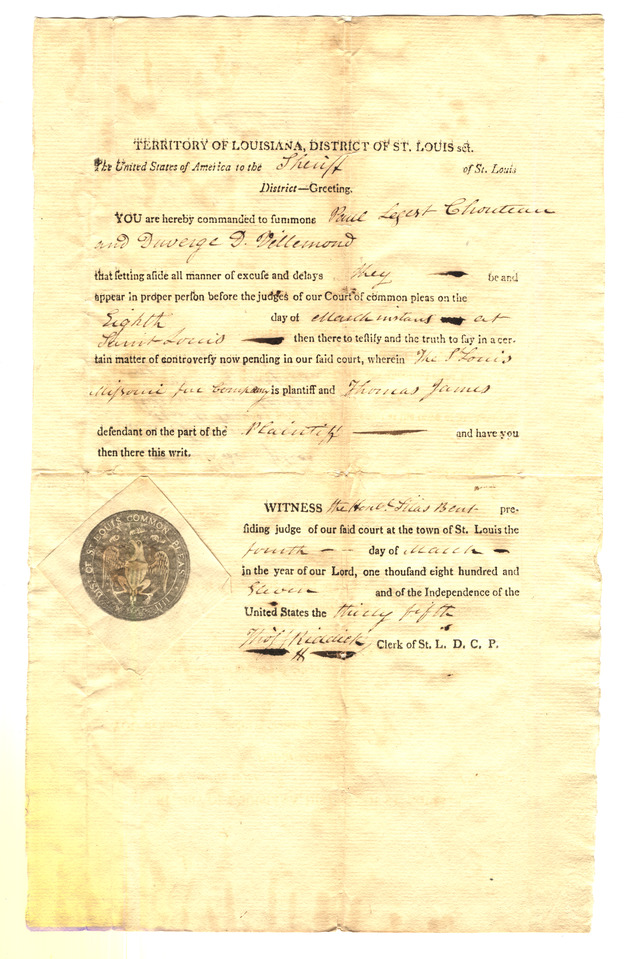 TERRITORY OF LOUISIANA, DISTRICT OF ST. LOUIS sct.
The United States of America to the Sheriff of St. Louis
District—Greeting.
YOU are hereby commanded to summons Paul Chouteau
and Duverge D. Villemond
that setting aside all manner of excuse and delays they be and
appear in proper person before the judges of our Court of common pleas on the
Eighth day of March instant at
Saint Louis then there to testify and the truth to say in a cer-
tain matter of controversy now pending in our said court, wherein The St Louis
Missouri fur Company is plantiff and Thomas James
defendant on the part of the Plaintiff and have you
then there this writ.
WITNESS the Honl Silas Bent pre-
siding judge of our said court at the town of St. Louis the
fourth day of March
in the year of our Lord, one thousand eight hundred and
Eleven and of the Independence of the
United States the thirty fifth
Thos F Riddick Clerk of St. L. D. C. P.
DIS. OF ST LOUIS COMMON PLEAS